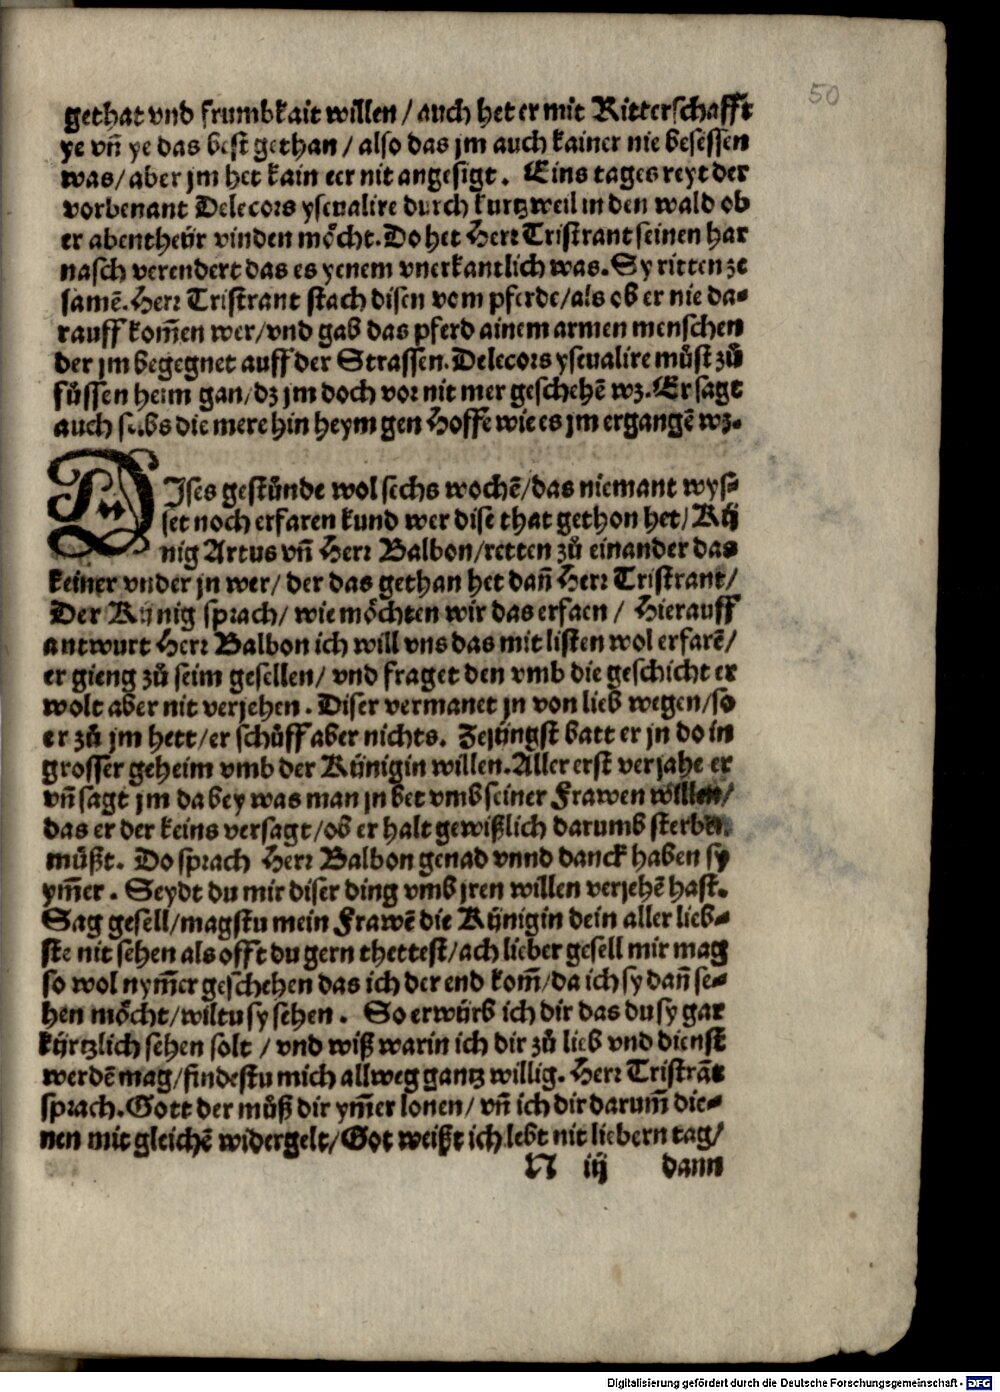 50
gethat vnd frumbkait willen / auch het er mit Ritterschafft
ye vñ ye das best gethan / also das jm auch kainer nie besessen
was / aber jm het kain eer nit angesigt . Eins tages reyt der
vorbenant Delecors yseualire durch kurtzweil in den wald ob
er abentheür vinden möcht. Do het Herr Tristrant seinen har
nasch verendert das es yenem vnerkantlich was. Sy ritten ze
samē. Herr Tristrant stach disen vom pferde / als ob er nie da-
rauff kom̄en wer / vnd gab das pferd ainem armen menschen
der jm begegnet auff der Strassen. Delecors yseualire můst zů
füssen heim gan / dz jm doch vor nit mer geschehē wz. Er sagt
auch selbs die mere hin heym gen Hoffe wie es jm ergangē wz.
DIses gestůnde wol sechs wochē / das niemant wys-
set noch erfaren kund wer dise that gethon het / Kü
nig Artus vñ Herr Balbon / retten zů einander das
keiner vnder jn wer / der das gethan het dañ Herr Tristrant /
Der Künig sprach / wie möchten wir das erfaen / Hierauff
antwurt Herr Balbon ich will vns das mit listen wol erfarē /
er gieng zů seim gesellen / vnd fraget den vmb die geschicht er
wolt aber nit verjehen . Diser vermanet jn von lieb wegen / so
er zů jm hett / er schůff aber nichts. Zejüngst batt er jn do in
grosser geheim vmb der Künigin willen. Aller erst verjahe er
vñ sagt jm da bey was man jn bet vmb seiner Frawen willen /
das er der keins versagt / ob er halt gewißlich darumb sterben
můßt. Do sprach Herr Balbon genad vnnd danck haben sy
ym̄er . Seydt du mir diser ding vmb jren willen verjehē hast.
Sag gesell / magstu mein Frawē die Künigin dein aller lieb-
ste nit sehen als offt du gern thettest / ach lieber gesell mir mag
so wol nym̄er geschehen das ich der end kom̄ / da ich sy dañ se-
hen möcht / wiltu sy sehen . So erwürb ich dir das du sy gar
kürtzlich sehen solt / vnd wiß warin ich dir zů lieb vnd dienst
werdē mag / findestu mich allweg gantz willig. Herr Tristrāt
sprach. Gott der můß dir ym̄er lonen / vñ ich dir darum̄ die-
nen mit gleichē widergelt / Got weißt ich lebt nit liebern tag /
N iij dann
Digitalisierung gefördert durch die Deutsche Forschungsgemeinschaft - DFG